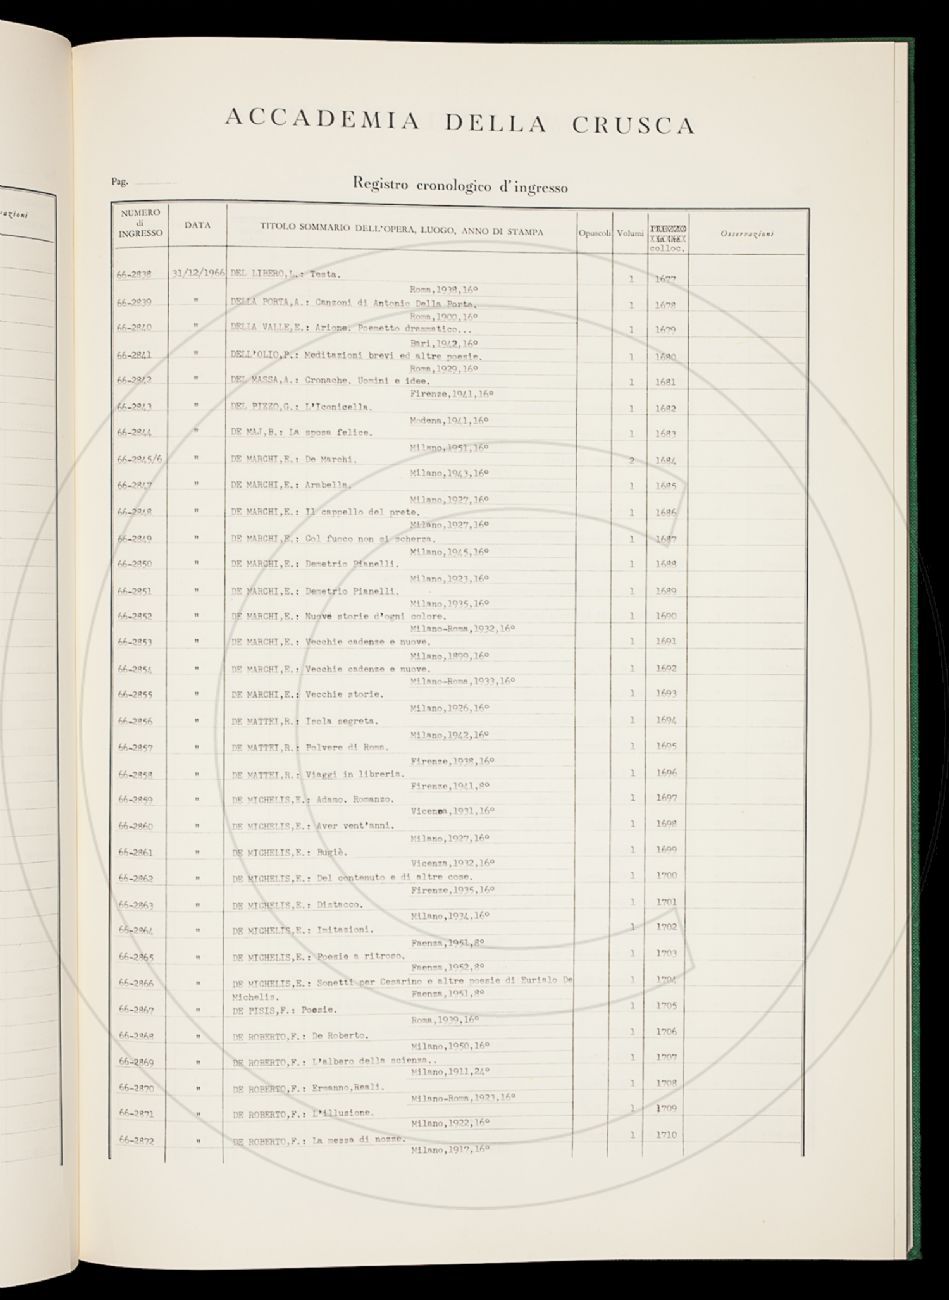 azioni
ACCADEMIA DELLA CRUSCA
Pag.
Registro cronologico d'ingresso
NUMERO di INGRESSO DATA TITOLO SOMMARIO DELL'OPERA, LUOGO, ANNO DI STAMPA Opuscoli Volumi colloc. Osservazioni
66-2838 31/12/1966 DEL LIBERO,L.: Testa. 1 1677
Roma,1938,16º
66-2839 " DELLA PORTA,A.: Canzoni di Antonio Della Porta. 1 1678
Roma,1900,16º
66-2840 " DELLA VALLE,E.: Arione. Poemetto drammatico... 1 1679
Bari,1942,16º
66-2841 " DELL'OLIO,P.: Meditazioni brevi ed altre poesie. 1 1680
Roma,1929,16º
66-2842 " DEL MASSA,A.: Cronache. Uomini e idee. 1 1681
Firenze,1941,16º
66-2843 " DEL PIZZO,G.: L'Iconicella. 1 1682
Modena,1941,16º
66-2844 " DE MAJ,B.: La sposa felice. 1 1683
Milano,1951,16º
66-2845/6 " DE MARCHI,E.: De Marchi. 2 1684
Milano,1943,16º
66-2847 " DE MARCHI,E.: Arabella. 1 1685
Milano,1927,16º
66-2848 " DE MARCHI,E.: Il cappello del prete. 1 1686
Milano,1927,16º
66-2849 " DE MARCHI,E.: Col fuoco non si scherza. 1 1687
Milano,1945,16º
66-2850 " DE MARCHI,E.: Demetrio Pianelli. 1 1688
Milano,1923,16º
66-2851 " DE MARCHI,E.: Demetrio Pianelli. 1 1689
Milano,1935,16º
66-2852 " DE MARCHI,E.: Nuove storie d'ogni colore. 1 1690
Milano-Roma,1932,16º
66-2853 " DE MARCHI,E.: Vecchie cadenze e nuove. 1 1691
Milano,1899,16º
66-2854 " DE MARCHI,E.: Vecchie cadenze e nuove. 1 1692
Milano-Roma,1933,16º
66-2855 " DE MARCHI,E.: Vecchie storie. 1 1693
Milano,1926,16º
66-2856 " DE MATTEI,R.: Isola segreta. 1 1694
Milano,1942,16º
66-2857 " DE MATTEI,R.: Polvere di Roma. 1 1695
Firenze,1938,16º
66-2858 " DE MATTEI,R.: Viaggi in libreria. 1 1696
Firenze,1941,8º
66-2859 " DE MICHELIS,E.: Adamo. Romanzo. 1 1697
Vicenza,1931,16º
66-2860 " DE MICHELIS,E.: Aver vent'anni. 1 1698
Milano,1927,16º
66-2861 " DE MICHELIS,E.: Bugiè. 1 1699
Vicenza,1932,16º
66-2862 " DE MICHELIS,E.: Del contenuto e di altre cose. 1 1700
Firenze,1935,16º
66-2863 " DE MICHELIS,E.: Distacco. 1 1701
Milano,1934,16º
66-2864 " DE MICHELIS,E.: Imitazioni. 1 1702
Faenza,1951,8º
66-2865 " DE MICHELIS,E.: Poesie a ritroso. 1 1703
Faenza,1952,8º
66-2866 " DE MICHELIS,E.: Sonetti per Cesarino e altre poesie di Eurialo De 1 1704
Michelis. Faenza,1951,8º
66-2867 " DE PISIS,F.: Poesie. 1 1705
Roma,1939,16º
66-2868 " DE ROBERTO,F.: De Roberto. 1 1706
Milano,1950,16º
66-2869 " DE ROBERTO,F.: L'albero della scienza.. 1 1707
Milano,1911,24º
66-2870 " DE ROBERTO,F.: Ermanno,Reali. 1 1708
Milano-Roma,1923,16º
66-2871 " DE ROBERTO,F.: L'illusione. 1 1709
Milano,1922,16º
66-2872 " DE ROBERTO,F.: La messa di nozze. 1 1710
Milano,1917,16º